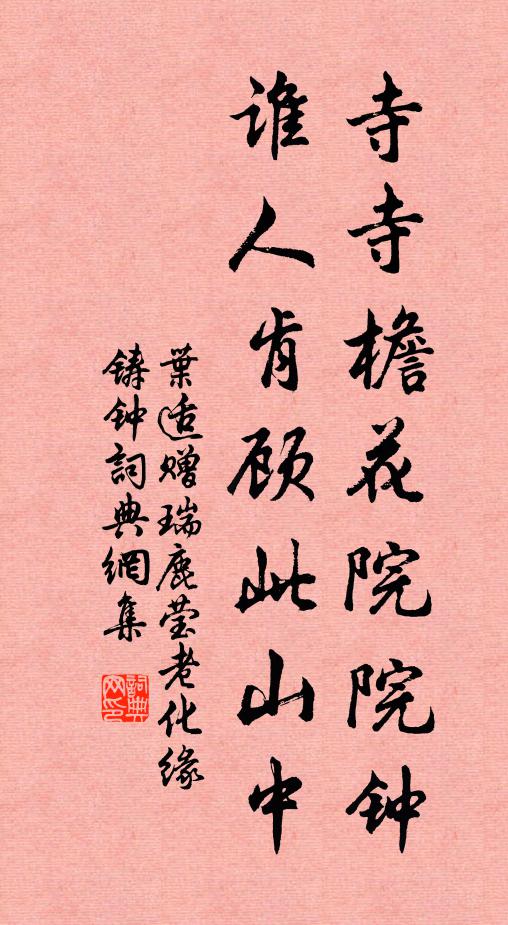 寺寺檐花院院钟
谁人肯顾此山中
葉适赠瑞鹿莹老化缘
铸钟詞典網集
詞典网印